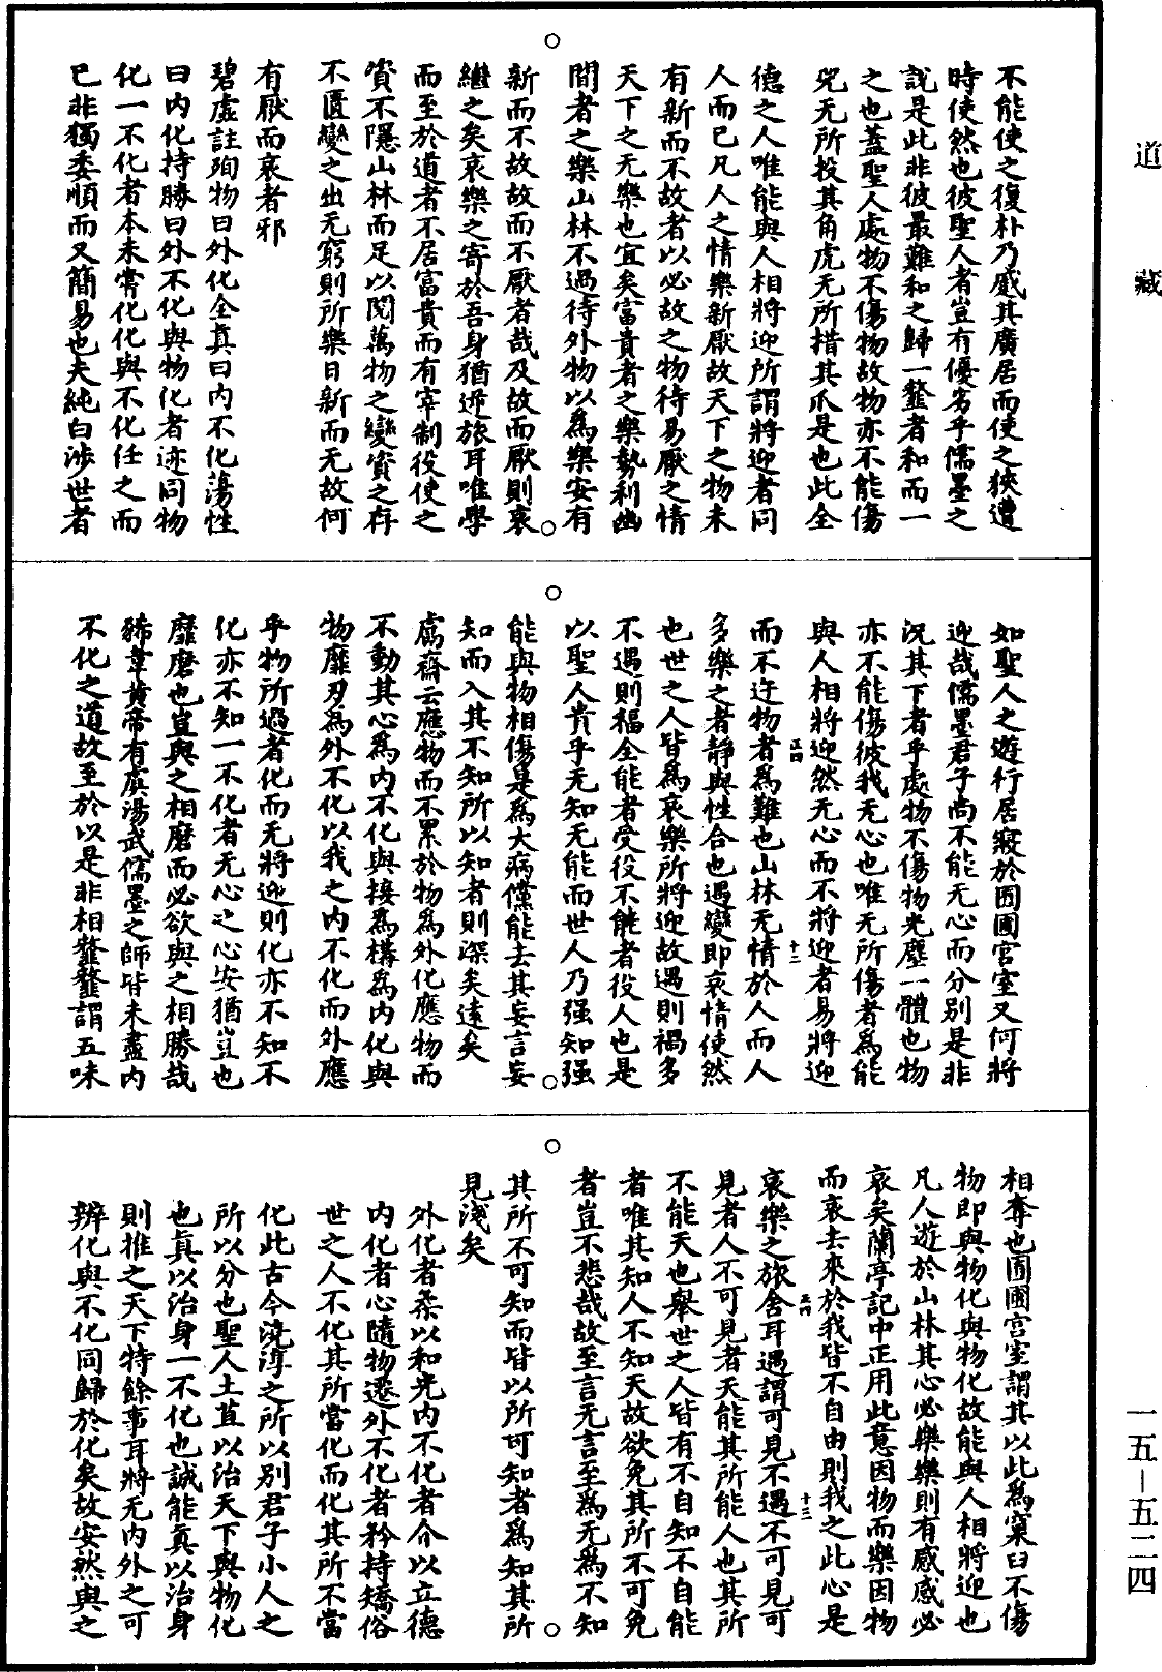 道藏
不能使之復朴乃感其廣居而使之狹遭
時使然也彼聖人者豈有優劣乎儒墨之
說是此非彼最難和之歸一韲者和而一
之也蓋聖人處物不傷物故物亦不能傷
兕无所投其角虎无所措其爪是也此全
德之人唯能與人相將迎所謂將迎者同
人而已凡人之情樂新厭故天下之物未
有新而不故者以必故之物待易厭之情
天下之无樂也宜矣富貴者之樂勢利幽
閒者之樂山林不過待外物以為樂安有
新而不故故而不厭者哉及故而厭則哀
繼之矣哀樂之寄於吾身猶逆旅耳唯學
而至於道者不居富貴而有宰制役使之
資不隱山林而足以閱萬物之變資之存
不匱變之出无窮則所樂日新而无故何
有厭而哀者邪
碧虛註殉物曰外化全真曰內不化蕩性
曰內化持勝曰外不化與物化者迹同物
化一不化者本未嘗化化與不化任之而
已非獨委順而又簡易也夫純白涉世者
如聖人之遊行居寢於囿圃宮室又何將
迎哉儒墨君子尚不能无心而分別是非
況其下者乎處物不傷物光塵一體也物
亦不能傷彼我无心也唯无所傷者為能
與人相將迎然无心而不將迎者易將迎
而不迕物者為難也山林无情於人而人
多樂之者靜與性合也遇變即哀情使然
也世之人皆為哀樂所將迎故遇則禍多
不遇則福全能者受役不能者役人也是
以聖人貴乎无知无能而世人乃强知强
能與物相傷是為大病儻能去其妄言妄
知而入其不知所以知者則深矣遠矣
鬳齋云應物而不累於物為外化應物而
不動其心為內不化與接為構為內化與
物靡刃為外不化以我之內不化而外應
乎物所過者化而无將迎則化亦不知不
化亦不知一不化者无心之心安猶豈也
靡磨也豈與之相磨而必欲與之相勝哉
狶韋黄帝有虞湯武儒墨之師皆未盡內
不化之道故至於以是非相韲韲謂五味
相奪也囿圃宮室謂其以此為窠臼不傷
物即與物化與物化故能與人相將迎也
凡人遊於山林其心必樂樂則有感感必
哀矣蘭亭記中正用此意因物而樂因物
而哀去來於我皆不自由則我之此心是
哀樂之旅舍耳遇謂可見不遇不可見可
見者人不可見者天能其所能人也其所
不能天也舉世之人皆有不自知不自能
者唯其知人不知天故欲免其所不可免
者豈不悲哉故至言无言至為无為不知
其所不可知而皆以所可知者為知其所
見淺矣
外化者柔以和光內不化者介以立德
內化者心隨物遷外不化者矜持矯俗
世之人不化其所當化而化其所不當
化此古今澆淳之所以別君子小人之
所以分也聖人土苴以治天下與物化
也真以治身一不化也誠能真以治身
則推之天下特餘事耳將无內外之可
辨化與不化同歸於化矣故安然與之
一五－五二四